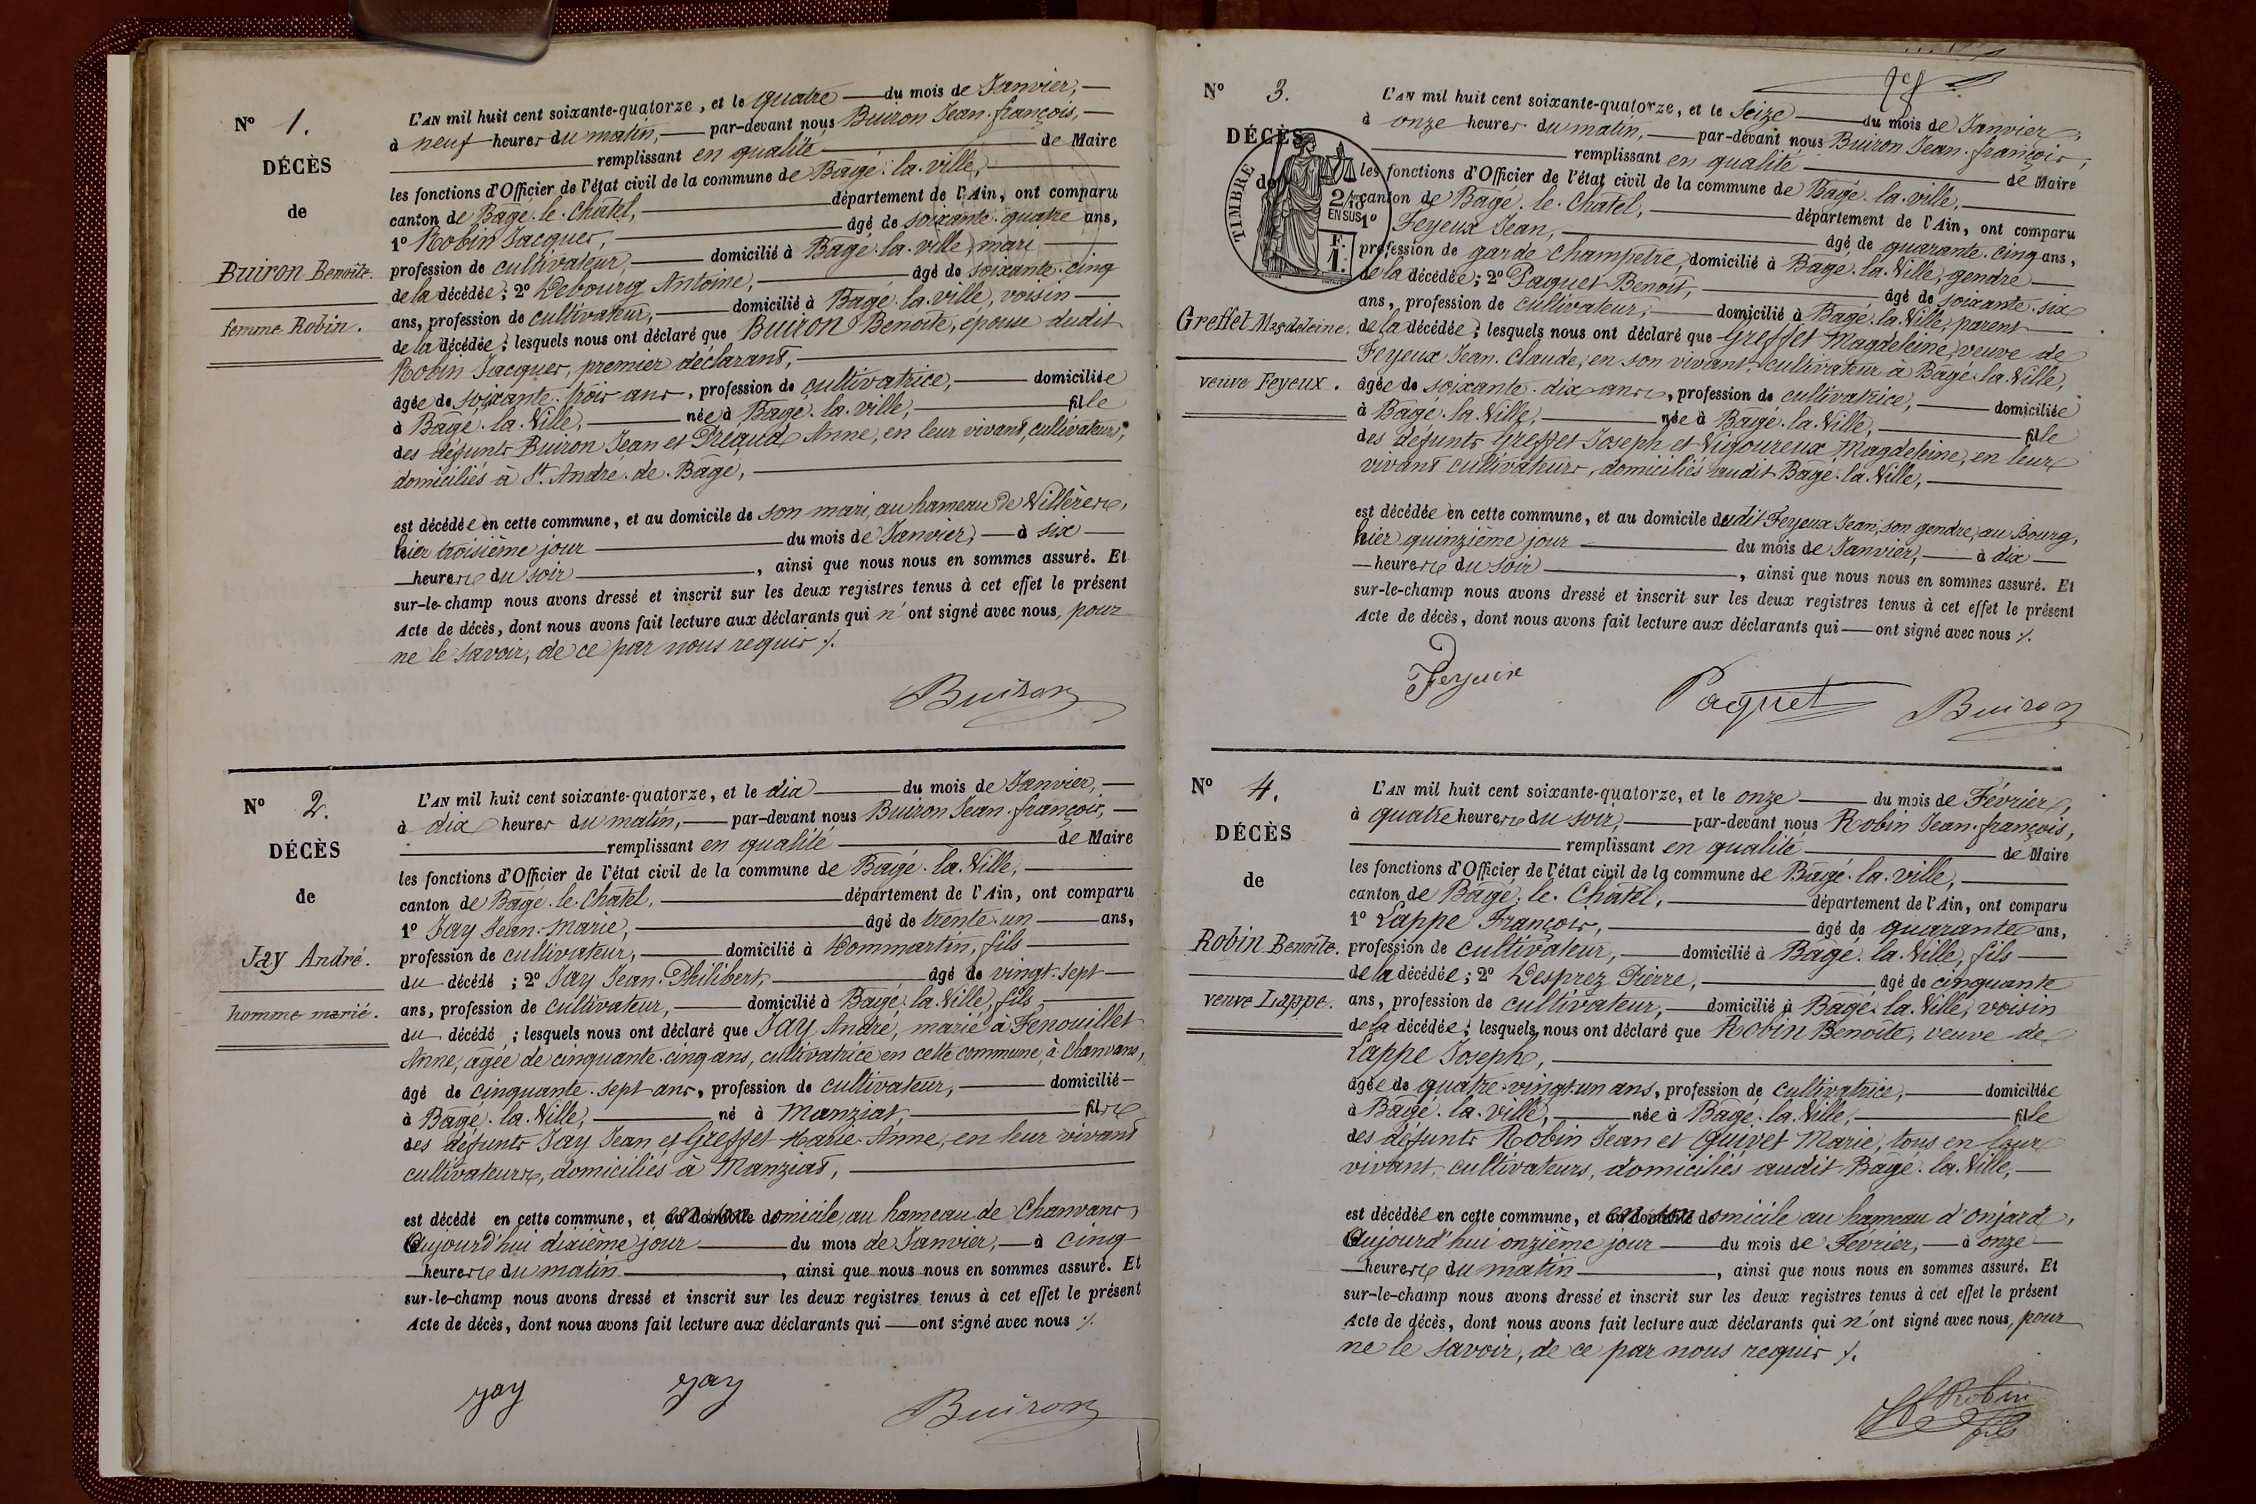 N° 1.
DÉCÈS
de
Buiron Benoîte.
femme Robin.
L'AN mil huit cent soixante-quatorze, et le quatre du mois de Janvier,
à neuf heures du matin, par-devant nous Buiron Jean-françois,
remplissant en qualité de Maire
les fonctions d'Officier de l'état civil de la commune de Bâgé-la-ville,
canton de Bâgé-le-Châtel, département de l'Ain, ont comparu
1° Robin Jacques, âgé de soixante-quatre ans,
profession de cultivateur, domicilié à Bâgé-la-ville, mari
de la décédée ; 2° Debourg Antoine, âgé de soixante-cinq
ans, profession de cultivateur, domicilié à Bâgé-la-ville, voisin
de la décédée ; lesquels nous ont déclaré que Buiron Benoîte, épouse dudit
Robin Jacques, premier déclarant,
âgée de soixante-trois ans, profession de cultivatrice, domiciliée
à Bâgé-la-Ville, née à Bâgé-la-ville, fille
des défunts Buiron Jean et Préaud Anne, en leur vivant, cultivateurs,
domiciliés à St. André-de-Bâgé,
est décédée en cette commune, et au domicile de son mari, au hameau de Villères,
hier troisième jour du mois de Janvier, à six
heures du soir, ainsi que nous nous en sommes assuré. Et
sur-le-champ nous avons dressé et inscrit sur les deux registres tenus à cet effet le présent
Acte de décès, dont nous avons fait lecture aux déclarants qui n'ont signé avec nous, pour
ne le savoir, de ce par nous requis ./.
Buiron
N° 2.
DÉCÈS
de
Jay André.
homme marié.
L'AN mil huit cent soixante-quatorze, et le dix du mois de Janvier,
à dix heures du matin, par-devant nous Buiron Jean-françois,
remplissant en qualité de Maire
les fonctions d'Officier de l'état civil de la commune de Bâgé-la-Ville,
canton de Bâgé-le-Châtel, département de l'Ain, ont comparu
1° Jay Jean-Marie, âgé de trente-un ans,
profession de cultivateur, domicilié à Dommartin, fils
du décédé ; 2° Jay Jean-Philibert, âgé de vingt-sept
ans, profession de cultivateur, domicilié à Bâgé-la-Ville, fils
du décédé ; lesquels nous ont déclaré que Jay André, marié à Fenouillet
Anne, âgée de cinquante-cinq ans, cultivatrice en cette commune, à Chanvans,
âgé de cinquante-sept ans, profession de cultivateur, domicilié
à Bâgé-la-Ville, né à Manziat, fils
des défunts Jay Jean et Greffet Marie-Anne, en leur vivant
cultivateurs, domiciliés à Manziat,
est décédé en cette commune, et en son domicile, au hameau de Chanvans,
Aujourd'hui dixième jour du mois de Janvier, à cinq
heures du matin, ainsi que nous nous en sommes assuré. Et
sur-le-champ nous avons dressé et inscrit sur les deux registres tenus à cet effet le présent
Acte de décès, dont nous avons fait lecture aux déclarants qui ont signé avec nous ./.
Jay Jay Buiron
N° 3.
DÉCÈS
de
TIMBRE
2/10
EN SUS
F.
1.
Greffet Magdeleine.
veuve Feyeux.
L'AN mil huit cent soixante-quatorze, et le Seize du mois de Janvier,
à onze heures du matin, par-devant nous Buiron Jean-françois,
remplissant en qualité de Maire
les fonctions d'Officier de l'état civil de la commune de Bâgé-la-ville,
canton de Bâgé-le-Châtel, département de l'Ain, ont comparu
1° Feyeux Jean, âgé de quarante-cinq ans,
profession de garde champêtre, domicilié à Bâgé-la-Ville, gendre
de la décédée ; 2° Paquet Benoît, âgé de soixante-six
ans, profession de cultivateur, domicilié à Bâgé-la-Ville, parent
de la décédée ; lesquels nous ont déclaré que Greffet Magdeleine, veuve de
Feyeux Jean-Claude, en son vivant, cultivateur à Bâgé-la-Ville,
âgée de soixante-dix ans, profession de cultivatrice, domiciliée
à Bâgé-la-Ville, née à Bâgé-la-Ville, fille
des défunts Greffet Joseph et Vigoureux Magdeleine, en leur
vivant cultivateurs, domiciliés audit Bâgé-la-Ville,
est décédée en cette commune, et au domicile dudit Feyeux Jean, son gendre, au Bourg,
hier quinzième jour du mois de Janvier, à dix
heures du soir, ainsi que nous nous en sommes assuré. Et
sur-le-champ nous avons dressé et inscrit sur les deux registres tenus à cet effet le présent
Acte de décès, dont nous avons fait lecture aux déclarants qui ont signé avec nous ./.
Feyeux Paquet Buiron
N° 4.
DÉCÈS
de
Robin Benoîte.
veuve Lappe.
L'AN mil huit cent soixante-quatorze, et le onze du mois de Février,
à quatre heures du soir, par-devant nous Robin Jean-françois,
remplissant en qualité de Maire
les fonctions d'Officier de l'état civil de la commune de Bâgé-la-ville,
canton de Bâgé-le-Châtel, département de l'Ain, ont comparu
1° Lappe François, âgé de quarante ans,
profession de cultivateur, domicilié à Bâgé-la-Ville, fils
de la décédée ; 2° Desprez Pierre, âgé de cinquante
ans, profession de cultivateur, domicilié à Bâgé-la-Ville, voisin
de la décédée ; lesquels nous ont déclaré que Robin Benoîte, veuve de
Lappe Joseph,
âgée de quatre-vingt-un ans, profession de cultivatrice, domiciliée
à Bâgé-la-ville, née à Bâgé-la-Ville, fille
des défunts Robin Jean et Quivet Marie, tous en leur
vivant, cultivateurs, domiciliés audit Bâgé-la-Ville,
est décédée en cette commune, et en son domicile au hameau d'onjard,
Aujourd'hui onzième jour du mois de Février, à onze
heures du matin, ainsi que nous nous en sommes assuré. Et
sur-le-champ nous avons dressé et inscrit sur les deux registres tenus à cet effet le présent
Acte de décès, dont nous avons fait lecture aux déclarants qui n'ont signé avec nous, pour
ne le savoir, de ce par nous requis ./.
Robin
fils